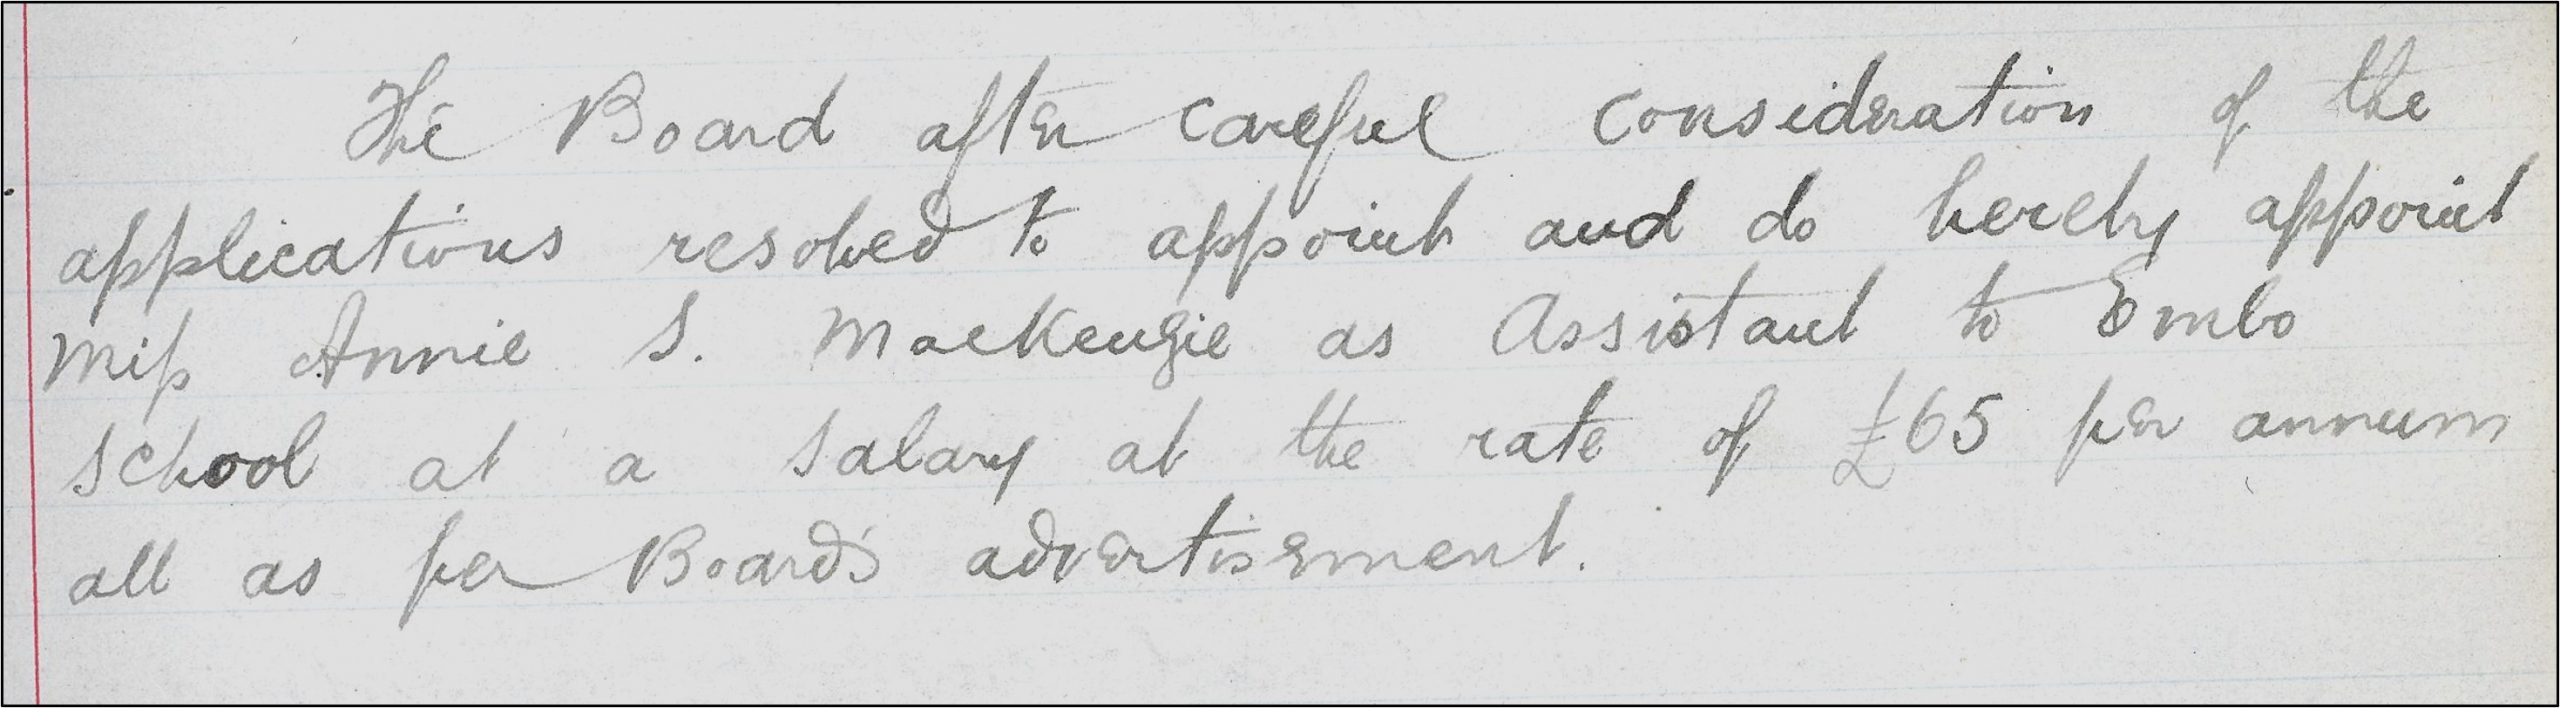 The Board after careful consideration of the
applications resolved to appoint and do hereby appoint
Miss Annie S. MacKenzie as Assistant to Embo
School at a salary at the rate of £65 per annum
all as per Board's advertisement.